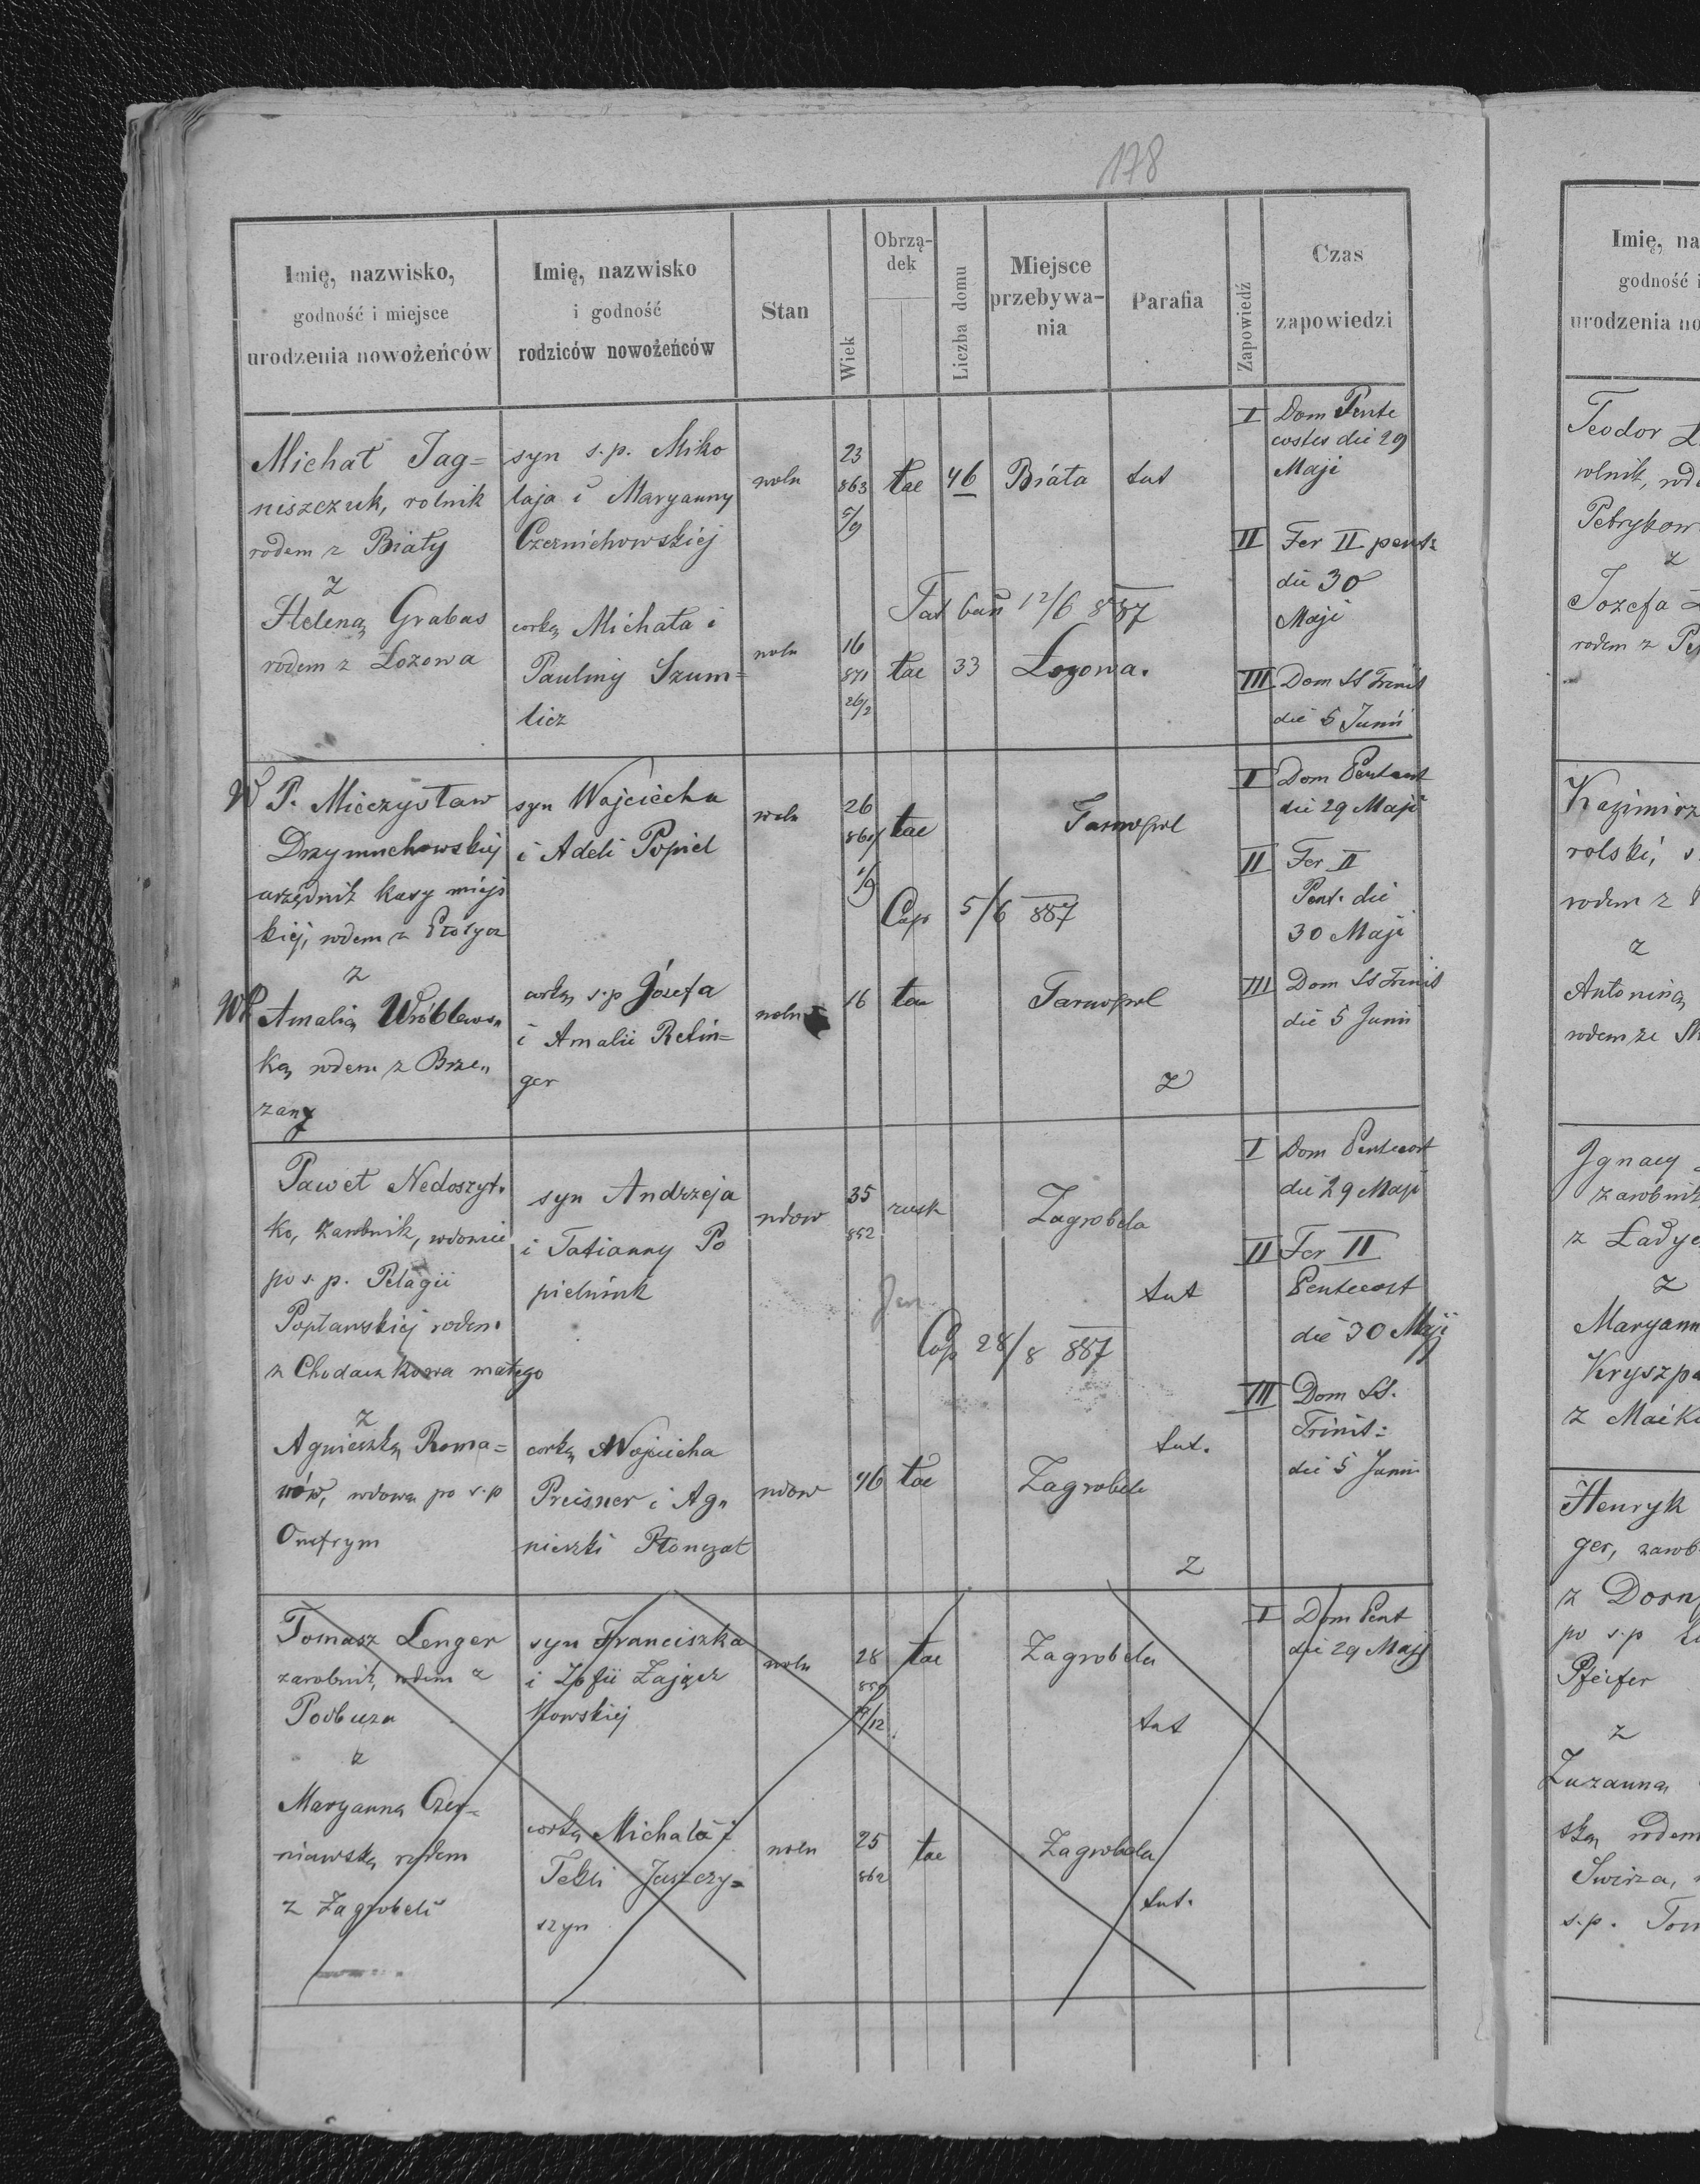 178
Imię, nazwisko,
godność i miejsce
urodzenia nowożeńców
Imię, nazwisko
i godność
rodziców nowożeńców
Stan
Wiek
Obrzą-
dek
Liczba domu
Miejsce
przebywa-
nia
Parafia
Zapowiedź
Czas
zapowiedzi
Michał Jag=
niszczuk, rolnik
rodem z Biały
z
Heleną Grabas
rodem z Łozowa
syn s.p. Miko
łaja i Maryanny
Czernichowskiej
corką Michała i
Pauliny Szum=
licz
woln
23
863
5/9
łac
46
Biała
tut
woln
16
871
26/2
łac
33
Łozowa.
12/6 887
I Dom Pente
costes die 29
Maji
II Fer II pent:
die 30
Maji
III Dom SS Trinit
die 5 Junii
W P. Mieczysław
Drzymuchowskiej
urzędnik kasy miejs
kiej, rodem z
z
WP Amalią Wróblews„
ką rodem z Brze„
zany
syn Wojciecha
i Adeli Popiel
corką s.p Józefa
i Amalii Retin=
ger
woln
26
861
1/9
łac
Tarnopol
Cop 5/6 887
woln
16
łac
Tarnopol
z
I Dom Pentecost
die 29 Maji
II Fer II
Pent. die
30 Maji
III Dom SS Trinit
die 5 Junii
Paweł Nedoszyt.
ko, zarobnik, wdowiec
po s.p. Pelagii
Popławskiej rodem
z Chodaczkowa małego
z
Agnieszką Roma=
nów, wdową po s.p
Onufrym
syn Andrzeja
i Tatianny Po
pielniuk
corką Wojciecha
Preisner i Ag„
nieszki Płonczat
wdow
35
852
rusk
Zagrobela
tut
Cop 28/8 887
wdow
46
łac
Zagrobela
tut.
z
I Dom Pentecost
die 29 Maji
II Fer II
Pentecost
die 30 Maji
III Dom SS.
Trinit:
die 5 Junii
Tomasz Lenger
zarobnik, rodem z
Podbuza
z
Maryanną Czer=
niawską rodem
z Zagrobeli
syn Franciszka
i Zofii Zającz
kowskiej
corką Michała i
Tekli Juszczy=
szyn
woln
28
859
łac
Zagrobela
tut
woln
25
862
łac
Zagrobela
tut.
I Dom Pent
die 29 Maji
Imię, na
godność i
urodzenia no
Teodor
rolnik, rode
Petrykow
z
Jozefa
rodem z Pe
Kazimirz
rolski, s
rodem z
z
Antoniną
rodem ze
Ignacy
zarobnik
z Ładyc
z
Maryann
Kryszpa
z Maćk
Henryk
ger, zarob
z Dorn
po s.p
Pfeifer
z
Zuzanną
ską rodem
Swirza,
s.p. Tom